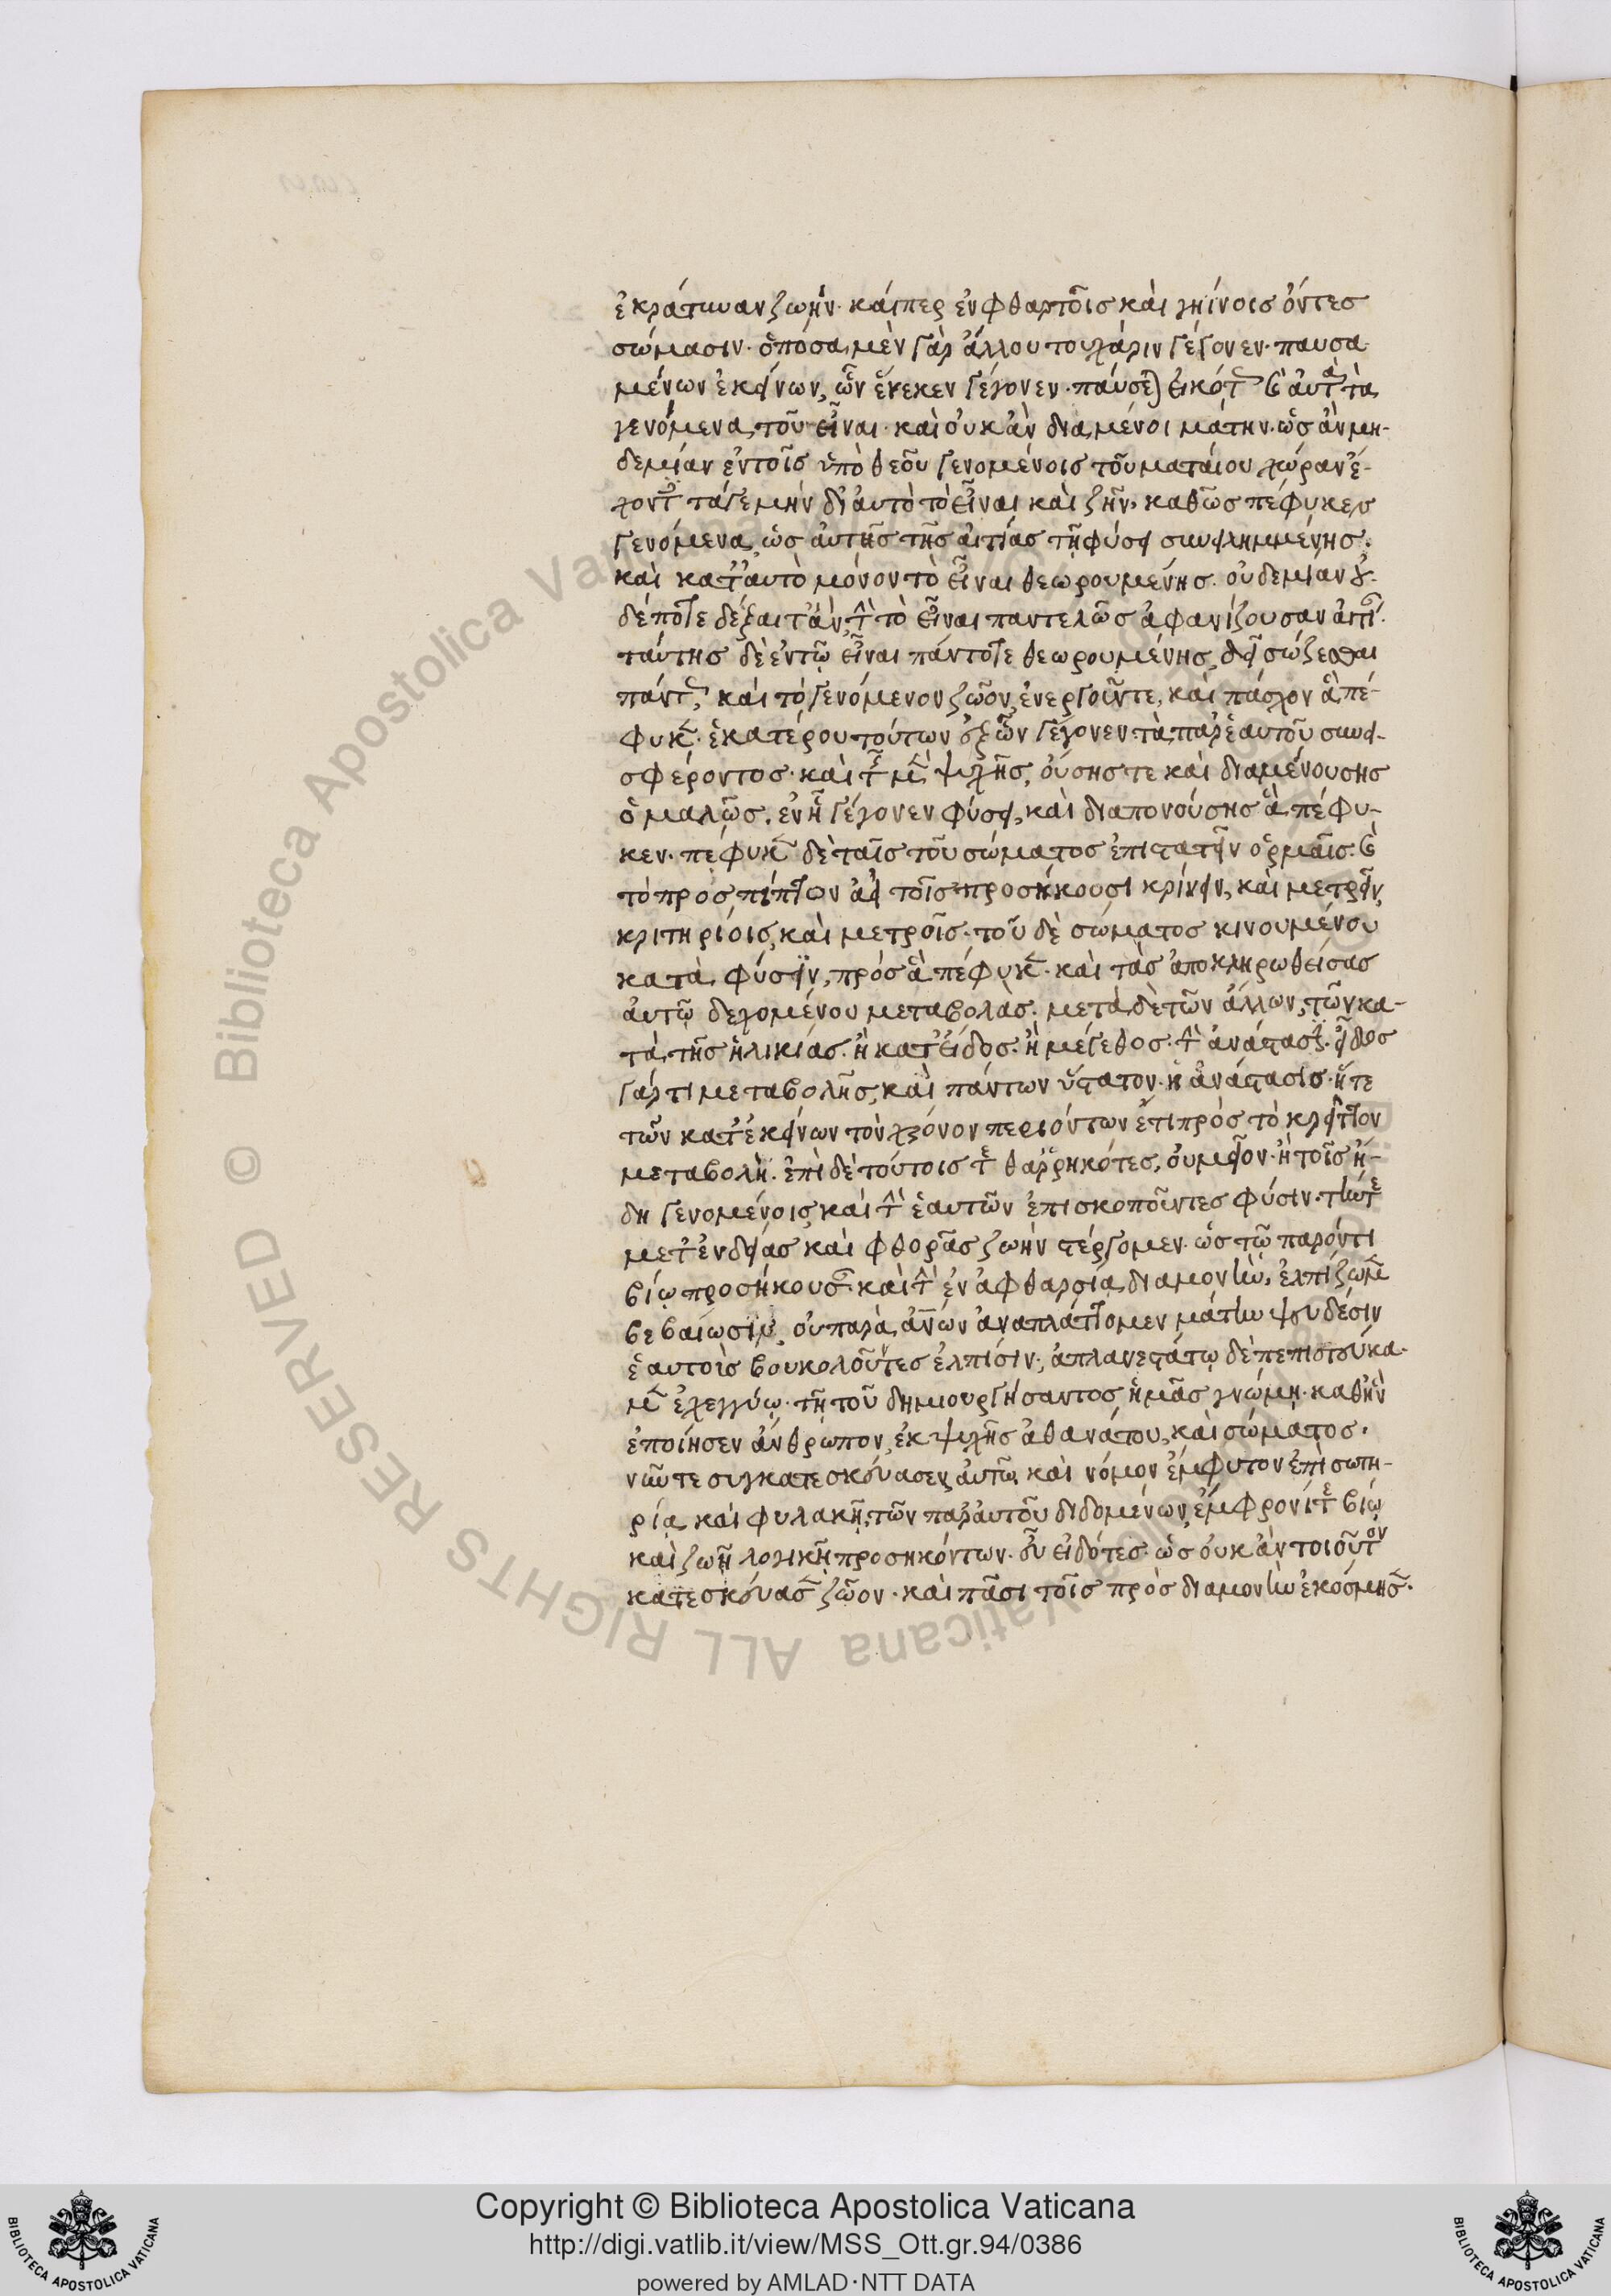 ἐκράτυναν ζωήν· καίπερ ἐν φθαρτοῖς καὶ γηίνοις ὄντες
σώμασιν· ὁπόσα μὲν γὰρ ἄλλου του χάριν γέγονεν· παυσα
μένων ἐκείνων, ὧν ἕνεκεν γέγονεν· παύσεται εἰκότως καὶ αὐτὰ τὰ
γενόμενα τοῦ εἶναι· καὶ οὐκ ἂν διαμένοι μάτην· ὡς ἂν μη-
δεμίαν ἐν τοῖς ὑπὸ θεοῦ γενομένοις τοῦ ματαίου χώραν ἔ-
χοντος τά γε μὴν δι' αὐτὸ τὸ εἶναι καὶ ζῆν, καθὼς πέφυκεν
γενόμενα, ὡς αὐτῆς τῆς αἰτίας τῇ φύσει συνειλημμένης·
καὶ κατ' αὐτὸ μόνον τὸ εἶναι θεωρουμένης· οὐδεμίαν οὐ-
δέποτε δέξαιτ' ἂν τὴν τὸ εἶναι παντελῶς ἀφανίζουσαν αἰτίαν·
ταύτης δὲ ἐν τῷ εἶναι πάντοτε θεωρουμένης, δεῖ σώζεσθαι
πάντως καὶ τὸ γενόμενον ζῶον, ἐνεργοῦν τε, καὶ πάσχον ἃ πέ-
φυκεν· ἑκατέρου τούτων ἐξ ὧν γέγονεν τὰ παρ' ἑαυτοῦ συνει-
σφέροντος· καὶ τῆς μὲν ψυχῆς, οὔσης τε καὶ διαμένουσης
ὁμαλῶς, ἐν ᾗ γέγονεν φύσει, καὶ διαπονούσης ἃ πέφυ-
κεν· πέφυκεν δὲ ταῖς τοῦ σώματος ἐπιστατεῖν ὁρμαῖς· καὶ
τὸ προσπίπτον ἀεὶ τοῖς προσήκουσι κρίνειν, καὶ μετρεῖν,
κριτηρίοις, καὶ μετροῖς· τοῦ δὲ σώματος κινουμένου
κατὰ φύσιν, πρὸς ἃ πέφυκεν· καὶ τὰς ἀποκληρωθείσας
αὐτῷ δεχομένου μεταβολάς· μετὰ δὲ τῶν ἄλλων, τῶν κα-
τὰ τῆς ἡλικίας· ἢ κατ' εἶδος· ἢ μέγεθος· τὴν ἀνάστασιν· εἶδος
γάρ τι μεταβολῆς, καὶ πάντων ὕστατον· ἡ ἀνάστασις· ἥ τε
τῶν κατ' ἐκείνων τὸν χρόνον περιόντων ἔτι πρὸς τὸ κρεῖττον
μεταβολή· ἐπὶ δὲ τούτοις τεθαρρηκότες, οὐ μεῖον· ἢ τοῖς ἤ-
δη γενομένοις, καὶ τὴν ἑαυτῶν ἐπισκοποῦντες φύσιν· τήν τε
μετ' ἐνδείας καὶ φθορᾶς ζωὴν στέργομεν· ὡς τῷ παρόντι
βίῳ προσήκουσαν· καὶ τὴν ἐν ἀφθαρσίᾳ διαμονὴν, ἐλπίζωμεν
βεβαίωσιν, οὐ παρὰ ἀνων ἀναπλάττομεν μάτην ψευδέσιν
ἑαυτοὺς βουκολοῦντες ἐλπίσιν· ἀπλανεστάτῳ δὲ πεπιστεύκα-
μεν ἐχεγγύῳ· τῇ τοῦ δημιουργήσαντος ἡμᾶς γνώμῃ· καθ' ἣν
ἐποίησεν ἄνθρωπον, ἐκ ψυχῆς ἀθανάτου, καὶ σώματος·
νῶ τε συγκατεσκεύασεν αὐτῷ, καὶ νόμον ἔμφυτον ἐπὶ σωτη-
ρίᾳ καὶ φυλακῇ, τῶν παρ' αὐτοῦ διδομένων, ἔμφρονί τε βίῳ
καὶ ζωῇ λογικῇ προσηκόντων· εὖ εἰδότες· ὡς οὐκ ἂν τοιοῦτον
κατεσκεύασεν ζῶον· καὶ πᾶσι τοῖς πρὸς διαμονὴν ἐκόσμησεν·
© Biblioteca Apostolica Vaticana ALL RIGHTS RESERVED
Copyright © Biblioteca Apostolica Vaticana
http://digi.vatlib.it/view/MSS_Ott.gr.94/0386
powered by AMLAD·NTT DATA
BIBLIOTECA APOSTOLICA VATICANA
BIBLIOTECA APOSTOLICA VATICANA